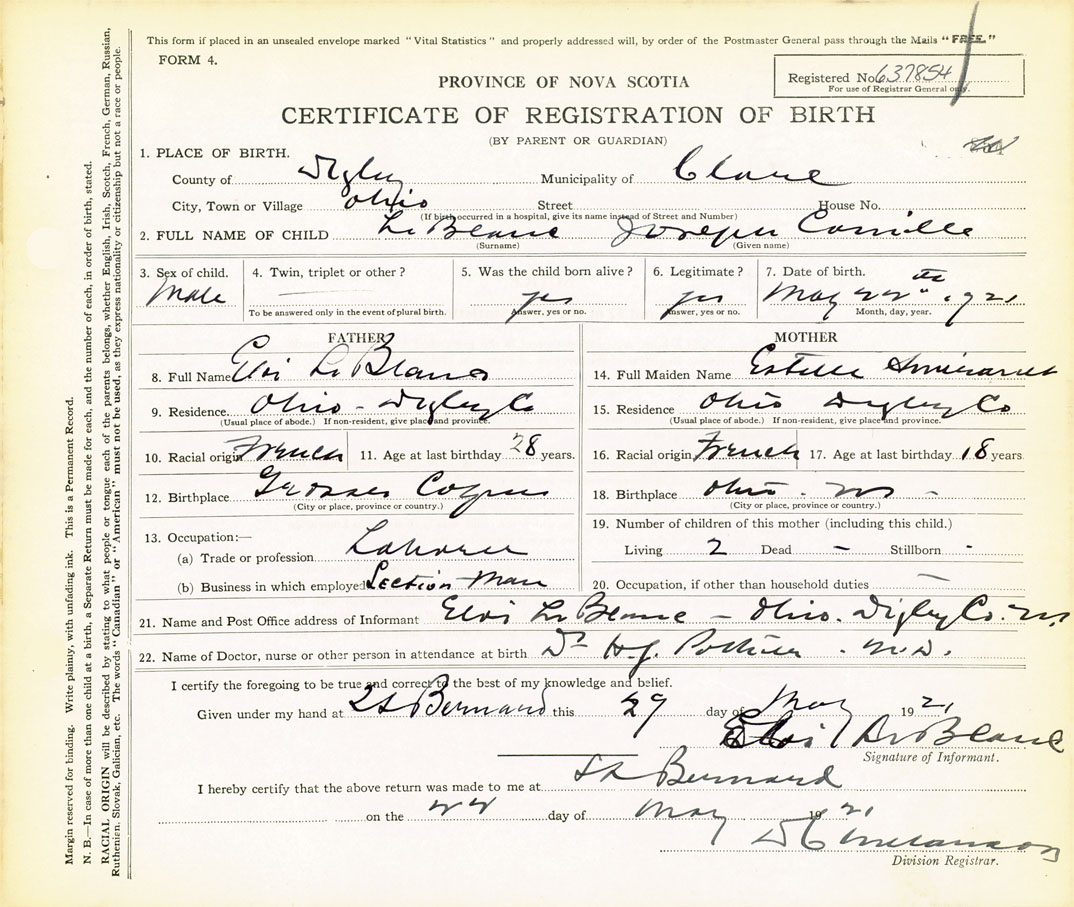 This form if placed in an unsealed envelope marked "Vital Statistics" and properly addressed will, by order of the Postmaster General pass through the Mails "FREE."
FORM 4.
PROVINCE OF NOVA SCOTIA
Registered No. 637854
For use of Registrar General only.
CERTIFICATE OF REGISTRATION OF BIRTH
(BY PARENT OR GUARDIAN)
1. PLACE OF BIRTH.
County of Digby Municipality of Clare
City, Town or Village Ohio Street House No.
(If birth occurred in a hospital, give its name instead of Street and Number)
2. FULL NAME OF CHILD LeBlanc Joseph Camille
(Surname) (Given name)
3. Sex of child. 4. Twin, triplet or other? 5. Was the child born alive? 6. Legitimate? 7. Date of birth.
Male yes yes May 22nd 1921
To be answered only in the event of plural birth. Answer, yes or no. Answer, yes or no. Month, day, year.
FATHER
8. Full Name Elvi LeBlanc
9. Residence. Ohio - Digby Co
(Usual place of abode.) If non-resident, give place and province.
10. Racial origin French 11. Age at last birthday 28 years.
12. Birthplace Grosses Coques
(City or place, province or country.)
13. Occupation:—
(a) Trade or profession Laborer
(b) Business in which employed Section Man
MOTHER
14. Full Maiden Name Estelle
15. Residence Ohio Digby Co
(Usual place of abode.) If non-resident, give place and province.
16. Racial origin French 17. Age at last birthday 18 years
18. Birthplace Ohio. NS -
(City or place, province or country.)
19. Number of children of this mother (including this child.)
Living 2 Dead - Stillborn -
20. Occupation, if other than household duties —
21. Name and Post Office address of Informant Elvi LeBlanc - Ohio. Digby Co. NS
22. Name of Doctor, nurse or other person in attendance at birth Dr H.J. Pothier . M.D.
I certify the foregoing to be true and correct to the best of my knowledge and belief.
Given under my hand at St Bernard this 29 day of May 1921
Elvi LeBlanc
Signature of Informant.
I hereby certify that the above return was made to me at St Bernard
on the day of May 1921
Melanson
Division Registrar.
Margin reserved for binding. Write plainly, with unfading ink. This is a Permanent Record.
N. B.—In case of more than one child at a birth, a Separate Return must be made for each, and the number of each, in order of birth, stated.
RACIAL ORIGIN will be described by stating to what people or tongue each of the parents belongs, whether English, Irish, Scotch, French, German, Russian,
Ruthenian, Slovak, Galician, etc. The words "Canadian" or "American" must not be used, as they express nationality or citizenship but not a race or people.